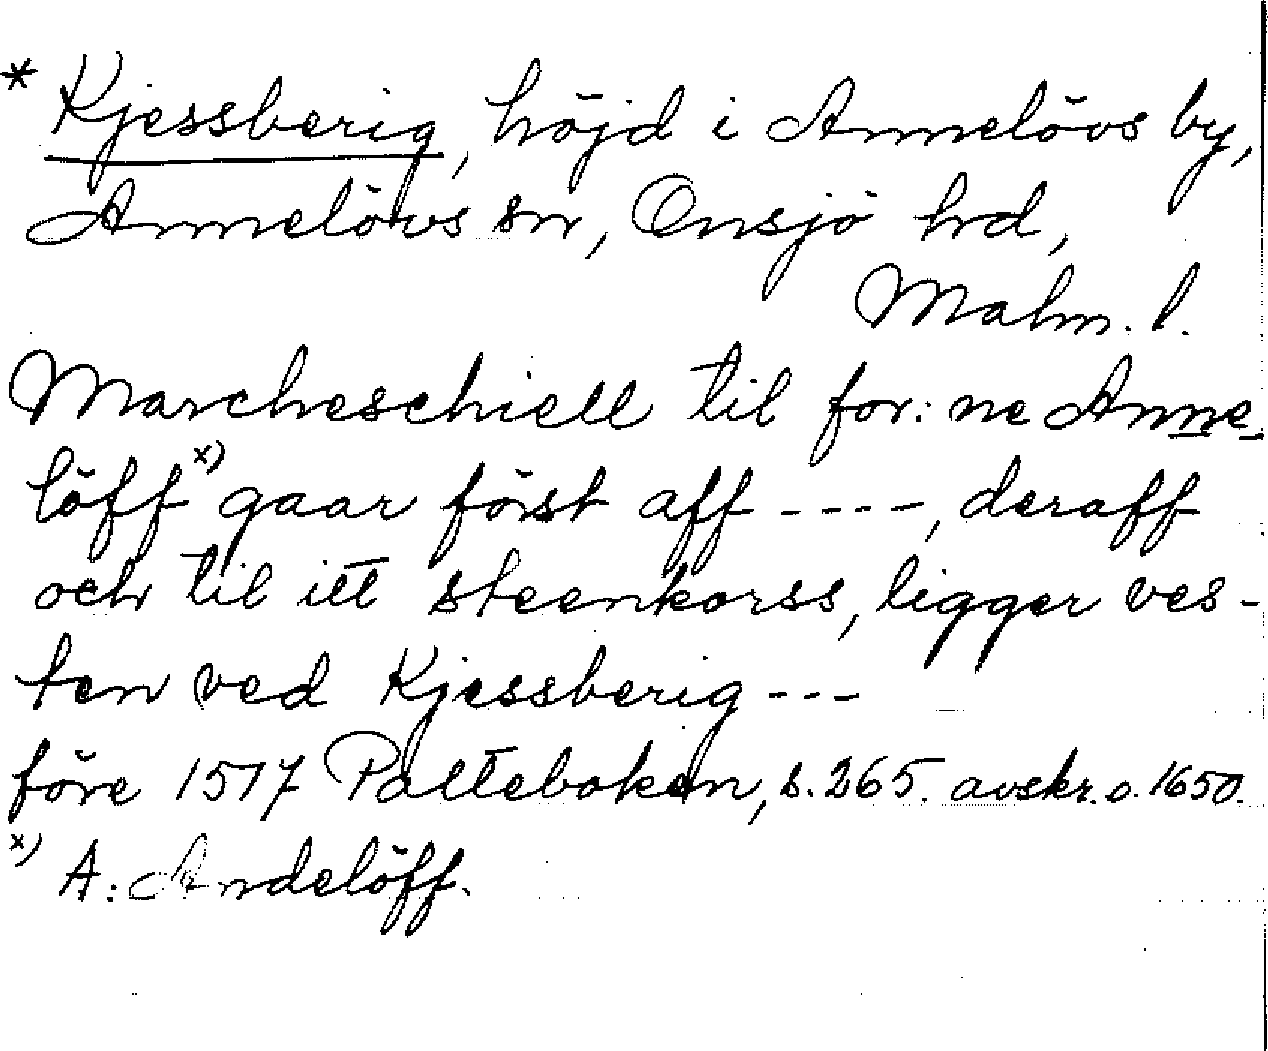 * Kjessberig, höjd i Annelövs by,
Annelövs sn, Onsjö hd,
Malm. l.
Marcheschiell til for: ne Anne-
löff x) gaar först aff ----, deraff
och til itt steenkorss, ligger ves-
ten ved Kjessberig ---
före 1517 Palteboken, s. 265. avskr. o. 1650.
x) A: Andelöff.